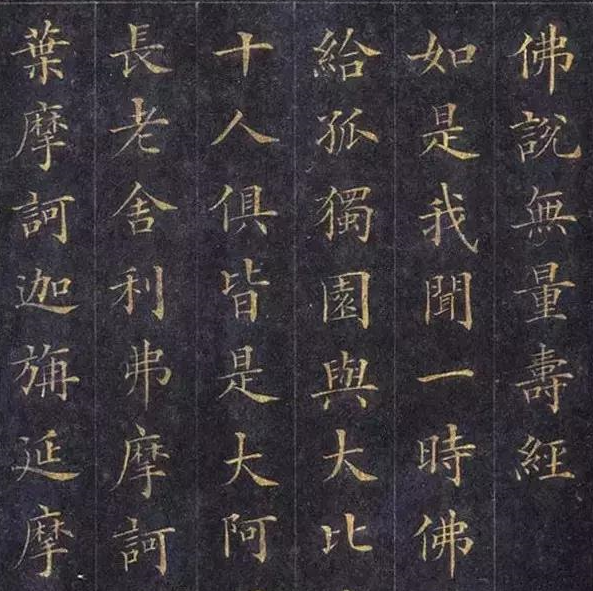 佛說無量壽經
如是我聞一時佛
給孤獨園與大比
十人俱皆是大阿
長老舍利弗摩訶
葉摩訶迦旃延摩